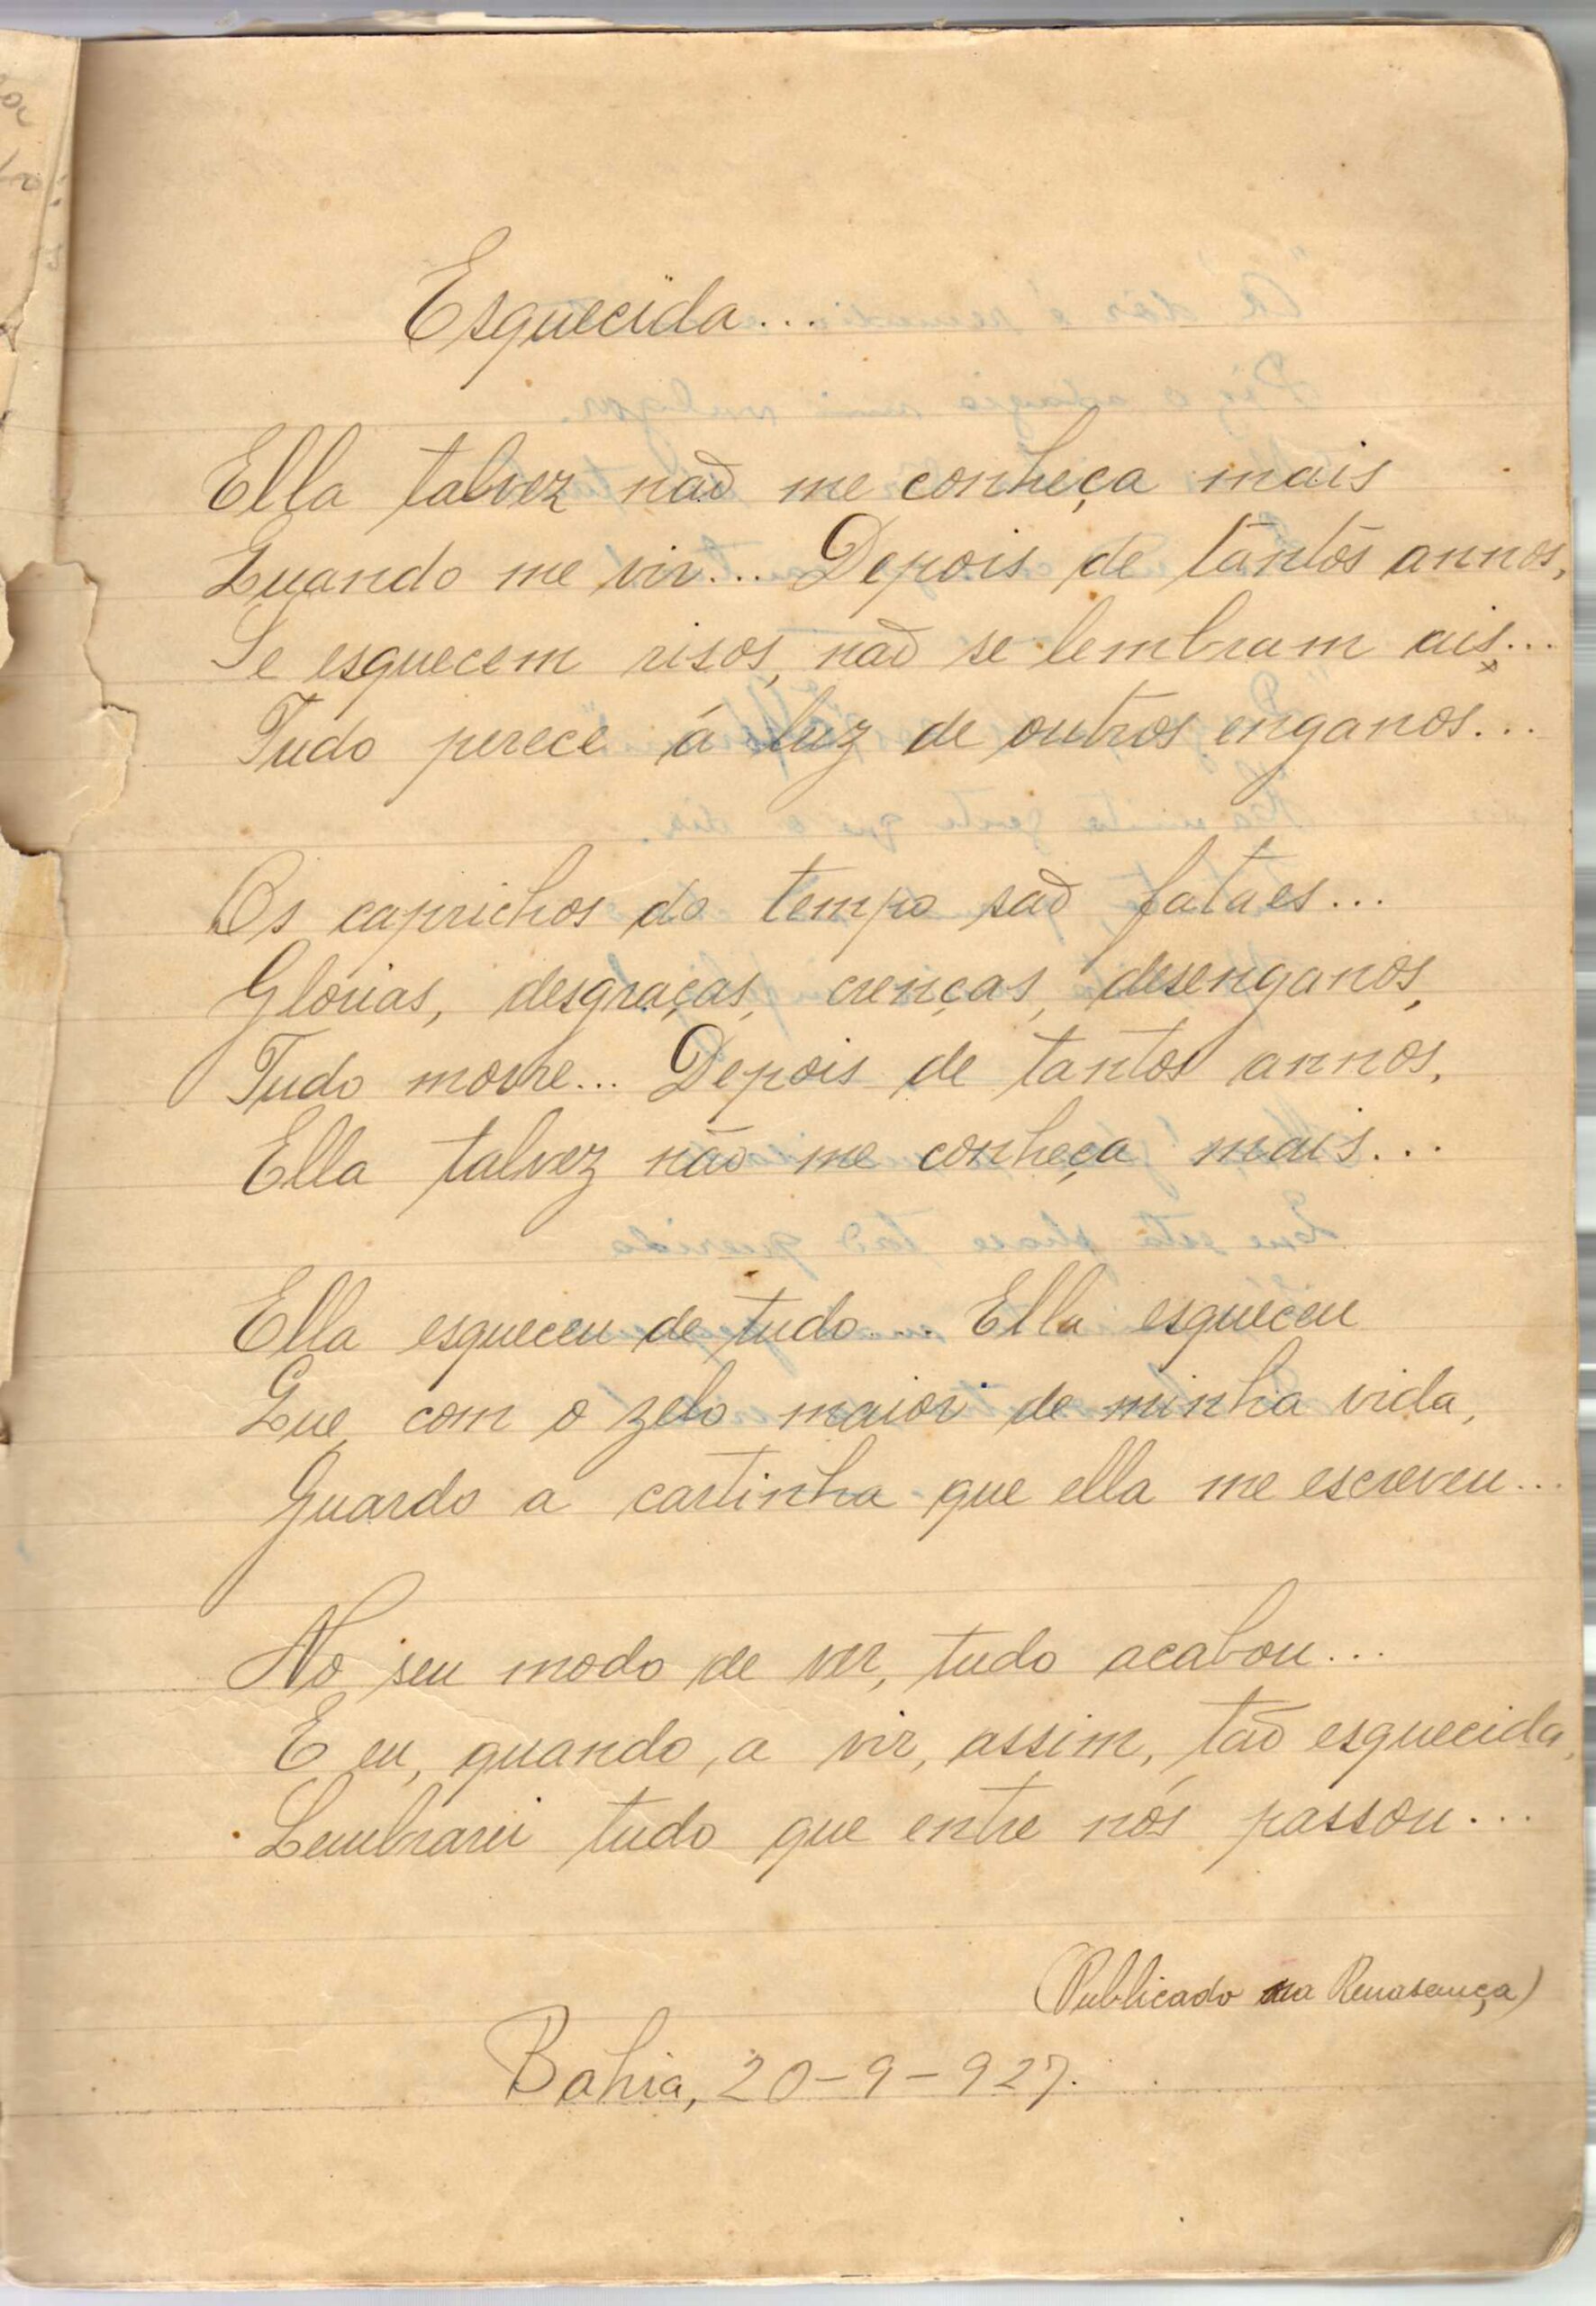 Esquecida...
Ella talvez não me conheça mais
Quando me vir... Depois de tantos annos,
Se esquecem risos, não se lembram ais...
Tudo perece á luz de outros enganos...
Os caprichos do tempo são fataes...
Glorias, desgraças, crenças, desenganos,
Tudo morre... Depois de tantos annos,
Ella talvez não me conheça mais...
Ella esqueceu de tudo... Ella esqueceu
Que, com o zelo maior de minha vida,
Guardo a cartinha que ella me escreveu...
No seu modo de ver, tudo acabou...
E eu, quando a vir, assim, tão esquecida,
Lembrarei tudo que entre nós passou...
(Publicado na Renascença)
Bahia, 20-9-927.